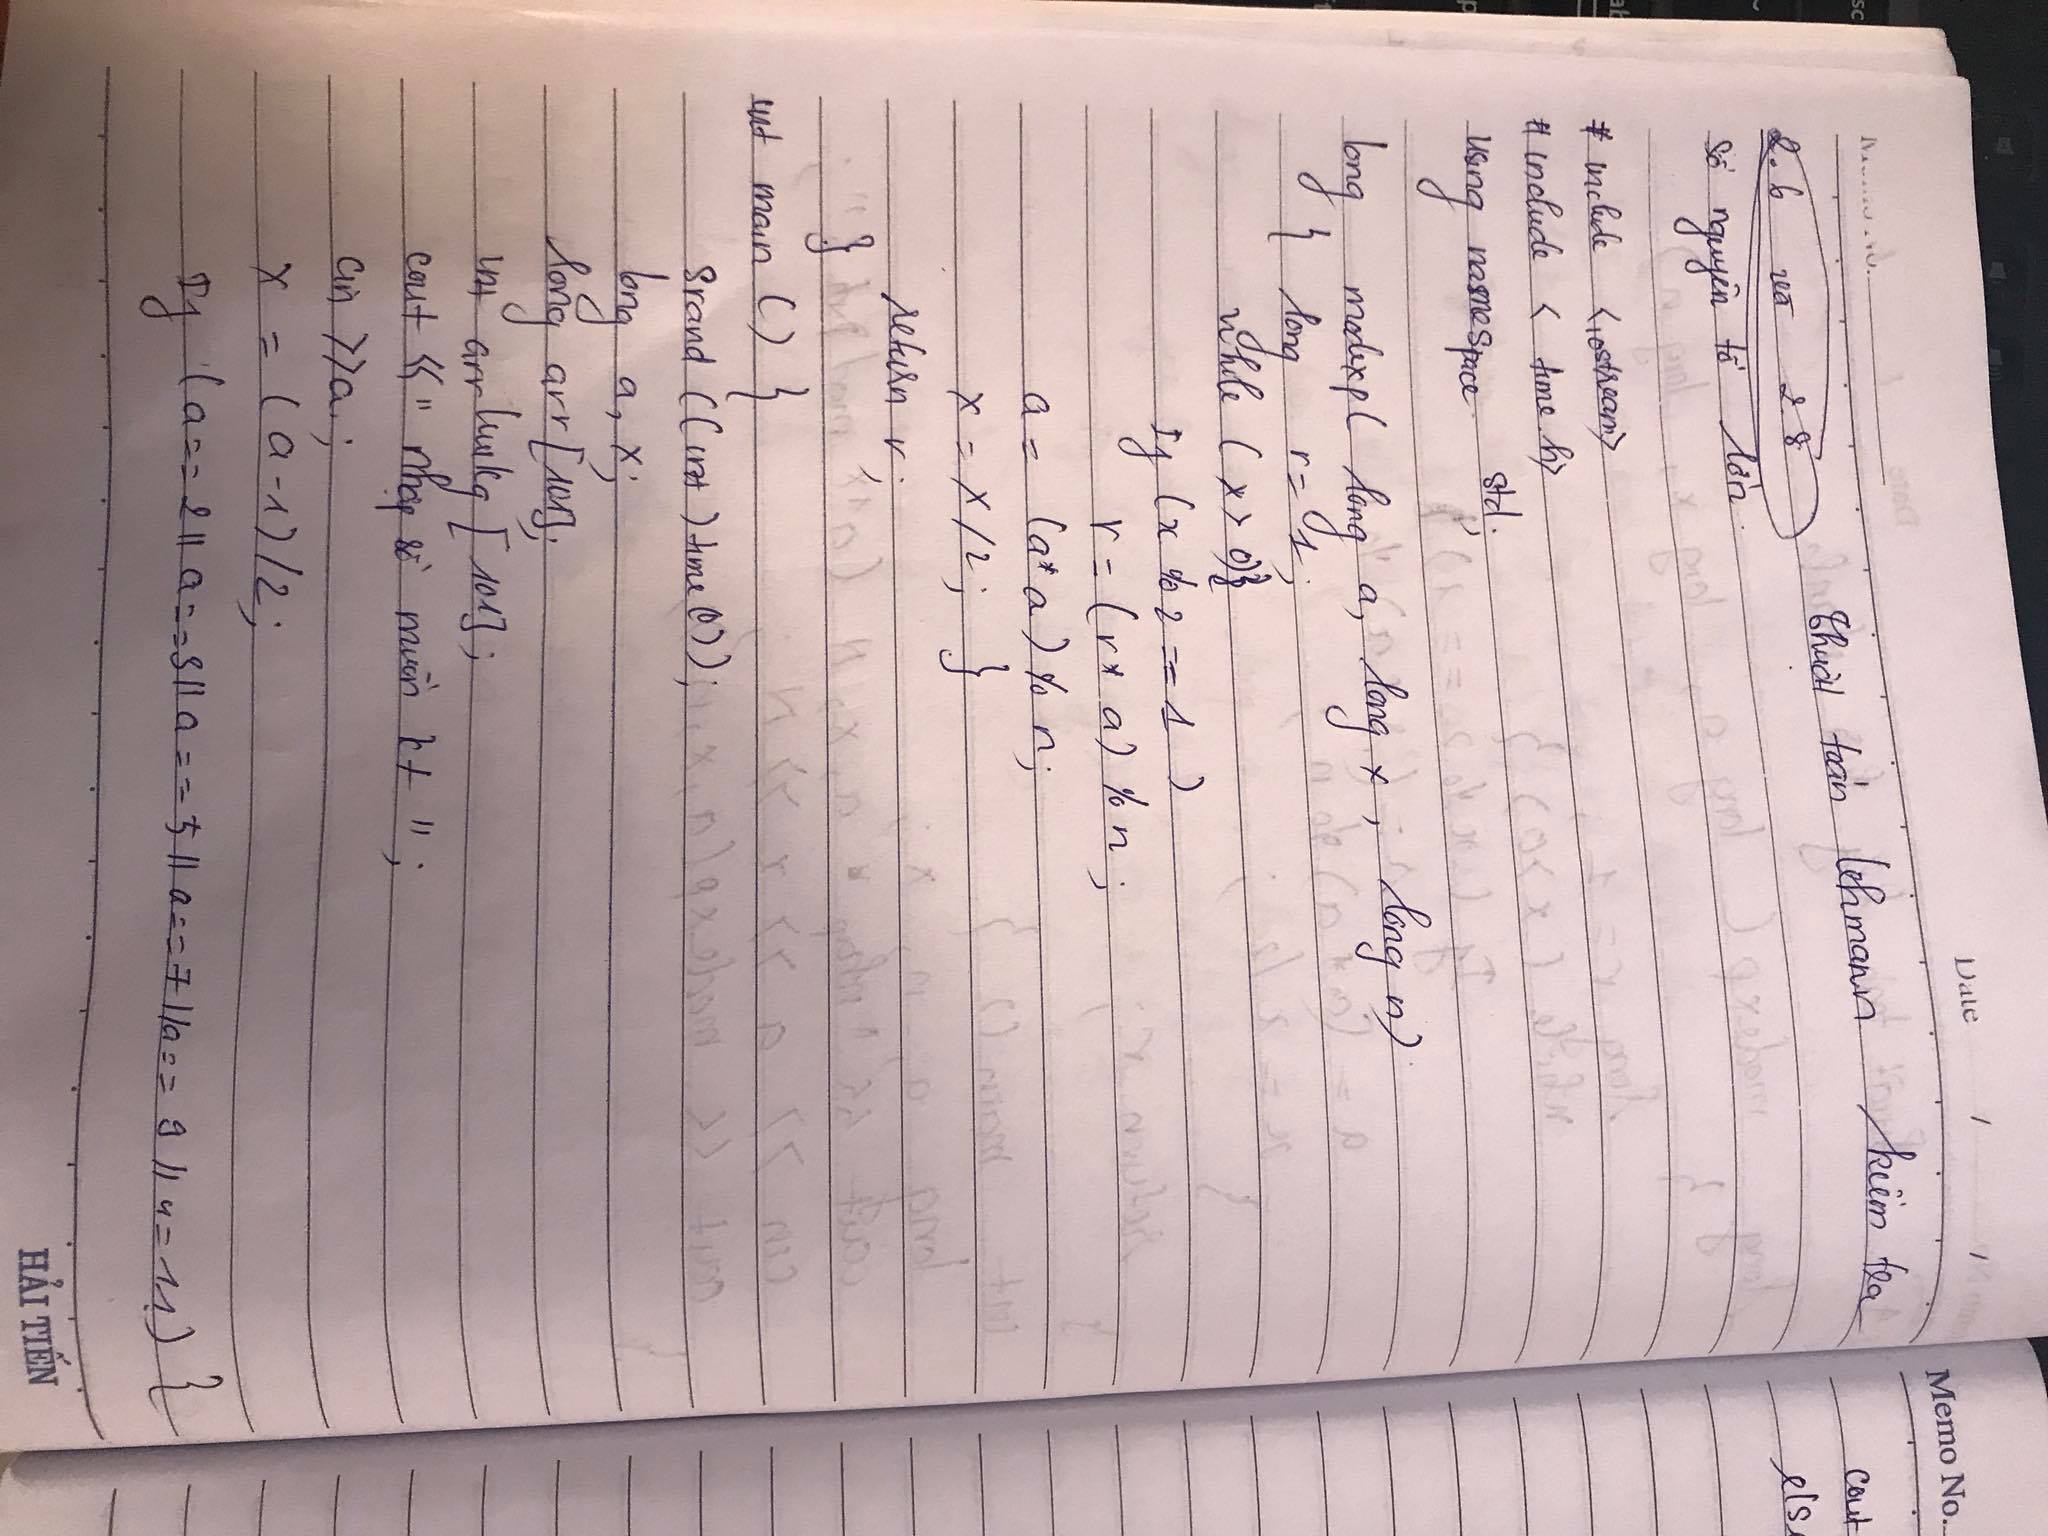 Date / /
2.6 và 28 Thuật toán Lehmann kiểm tra
số nguyên tố lớn.
# include <iostream>
# include < time.h>
using namespace std;
long modexp( long a, long x, long n)
{ long r=1;
while ( x> 0){
If (x % 2 == 1 )
r = (r* a) % n;
a = (a* a) % n;
x = x /2; }
return r;
}
int main () {
Srand ((int) time(0));
long a, x;
long arr [101];
int arr [101];
cout << " nhập số muốn kt " ;
cin >>a;
x = (a-1) /2;
If (a== 2 || a==3 || a==5 || a==7 || a== 9 || a=11) {
HẢI TIẾN
Memo No.
cout